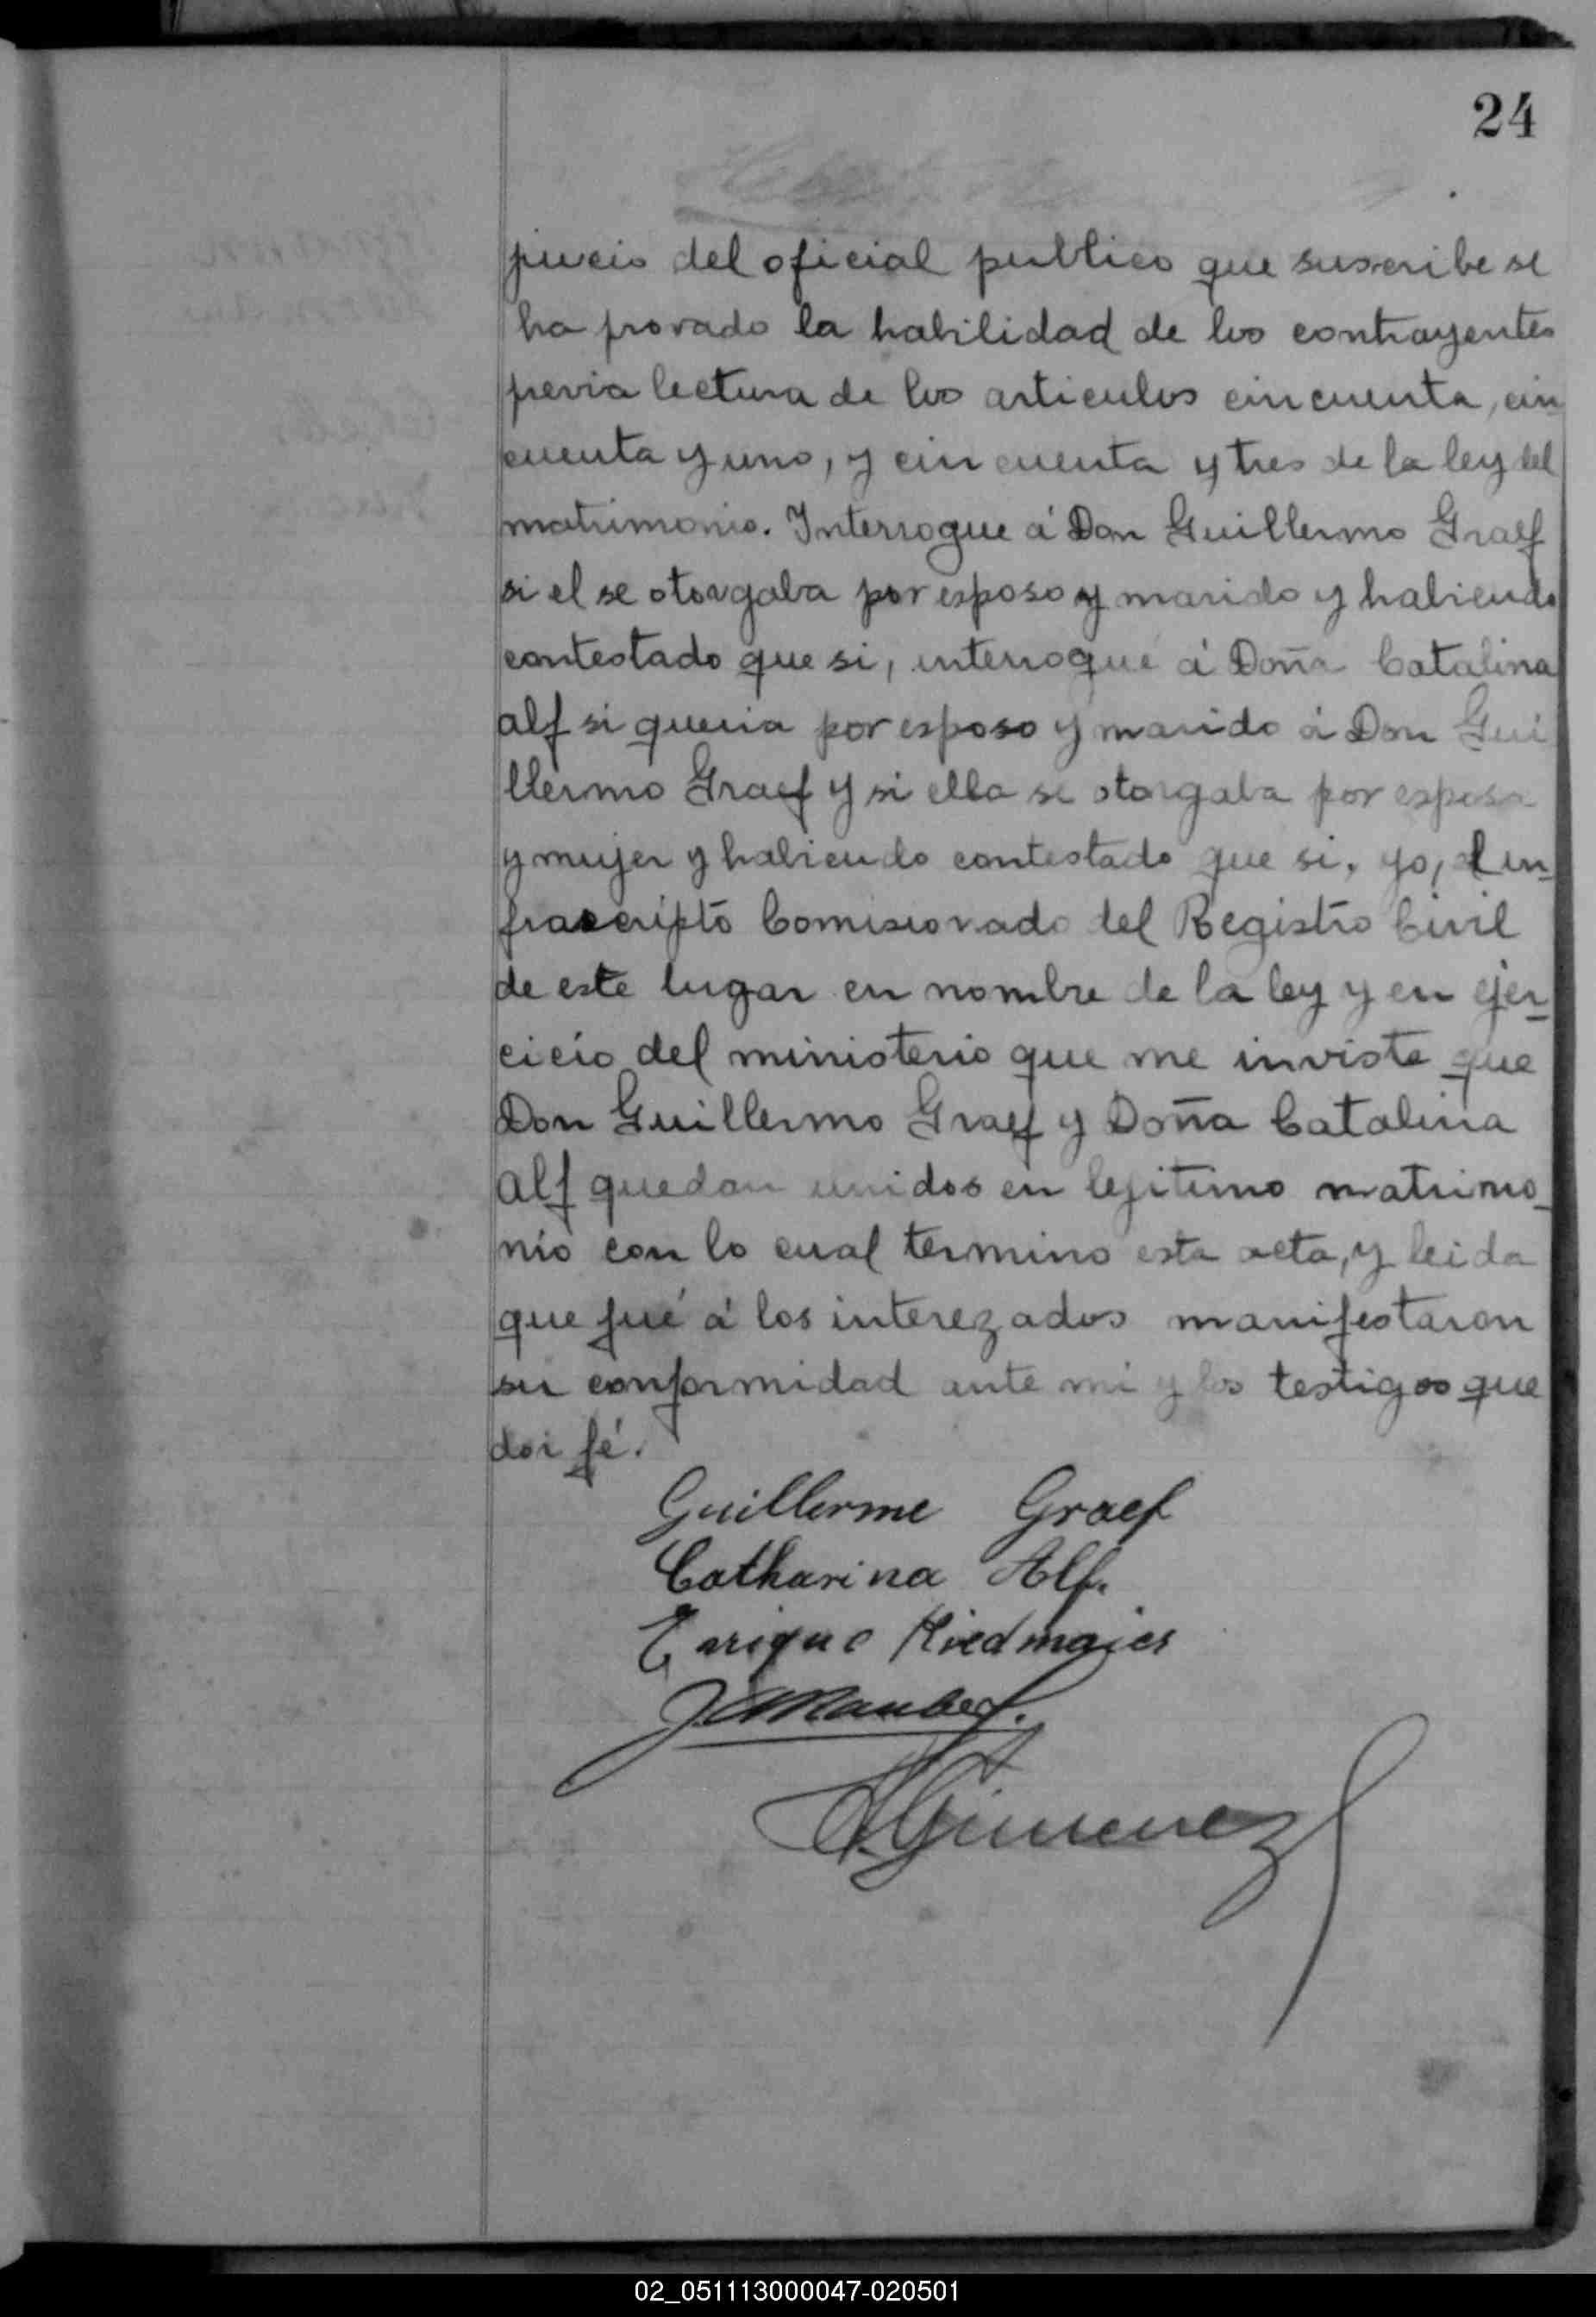 24
juicio del oficial publico que suscribe se
ha provado la habilidad de los contrayentes
previa lectura de los articulos cincuenta, cin
cuenta y uno, y cincuenta y tres de la ley del
matrimonio. Interrogue á Don Guillermo Graef
si el se otorgaba por esposo y marido y habiendo
contestado que si, interrogué á Doña Catalina
Alf si queria por esposo y marido á Don Gui
llermo Graef y si ella se otorgaba por esposa
y mujer y habiendo contestado que si, yo, el in_
frascripto Comisionado del Registro Civil
de este lugar en nombre de la ley y en ejer_
cicio del ministerio que me inviste que
Don Guillermo Graef y Doña Catalina
Alf quedan unidos en lejitimo matrimo_
nio con lo cual termino esta acta, y leida
que fué á los interezados manifestaron
su conformidad ante mi y los testigos que
doi fé.
Guillerme Graef
Catharina Alf.
Enrique Riedmaier
Gimenez
02_051113000047-020501